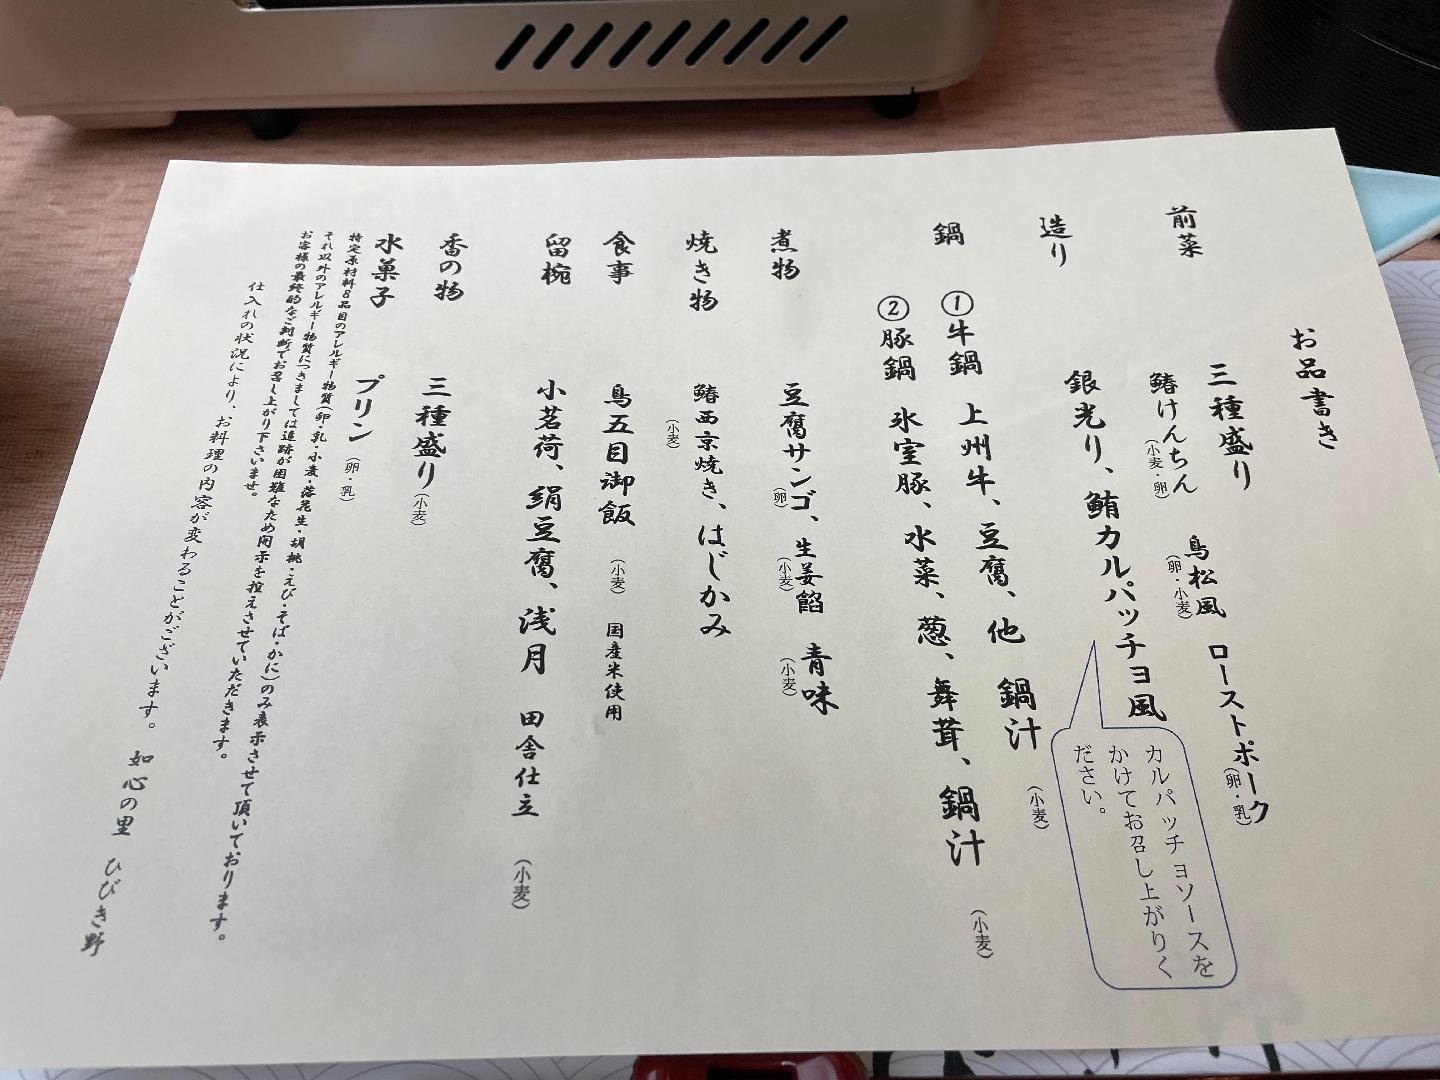 お品書き
前菜 三種盛り
鰆けんちん(小麦・卵) 鳥松風(卵・小麦) ローストポーク(卵・乳)
造り 銀光り、鮪カルパッチョ風
カルパッチョソースを
かけてお召し上がりく
ださい。
鍋 ①牛鍋 上州牛、豆腐、他 鍋汁(小麦)
②豚鍋 氷室豚、水菜、葱、舞茸、鍋汁(小麦)
煮物 豆腐サンゴ(卵)、生姜餡(小麦) 青味(小麦)
焼き物 鰆西京焼き、はじかみ
(小麦)
食事 鳥五目御飯(小麦) 国産米使用
留椀 小茗荷、絹豆腐、浅月 田舎仕立(小麦)
香の物 三種盛り(小麦)
水菓子 プリン(卵・乳)
特定原材料8品目のアレルギー物質(卵・乳・小麦・落花生・胡桃・えび・そば・かに)のみ表示させて頂いております。
それ以外のアレルギー物質につきましては追跡が困難なため開示を控えさせていただきます。
お客様の最終的なご判断でお召し上がり下さいませ。
仕入れの状況により、お料理の内容が変わることがございます。
如心の里 ひびき野